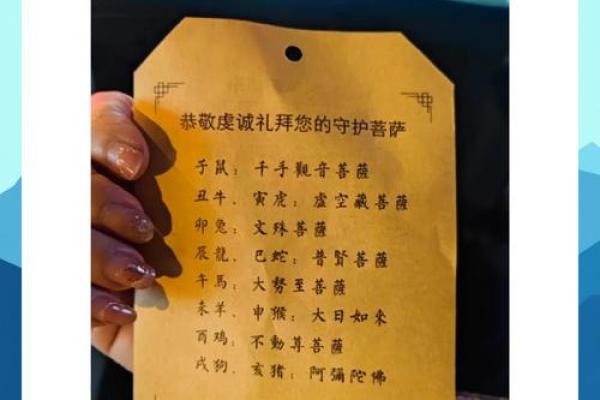 恭敬虔诚礼拜您的守护菩萨
子鼠：千手觀音菩薩
丑牛、寅虎：虛空藏菩薩
卯兔：文殊菩薩
辰龍、巳蛇：普賢菩薩
午馬：大勢至菩薩
未羊、申猴：大日如来
酉鸡：不動尊菩薩
戌狗、亥猪：阿彌陀佛